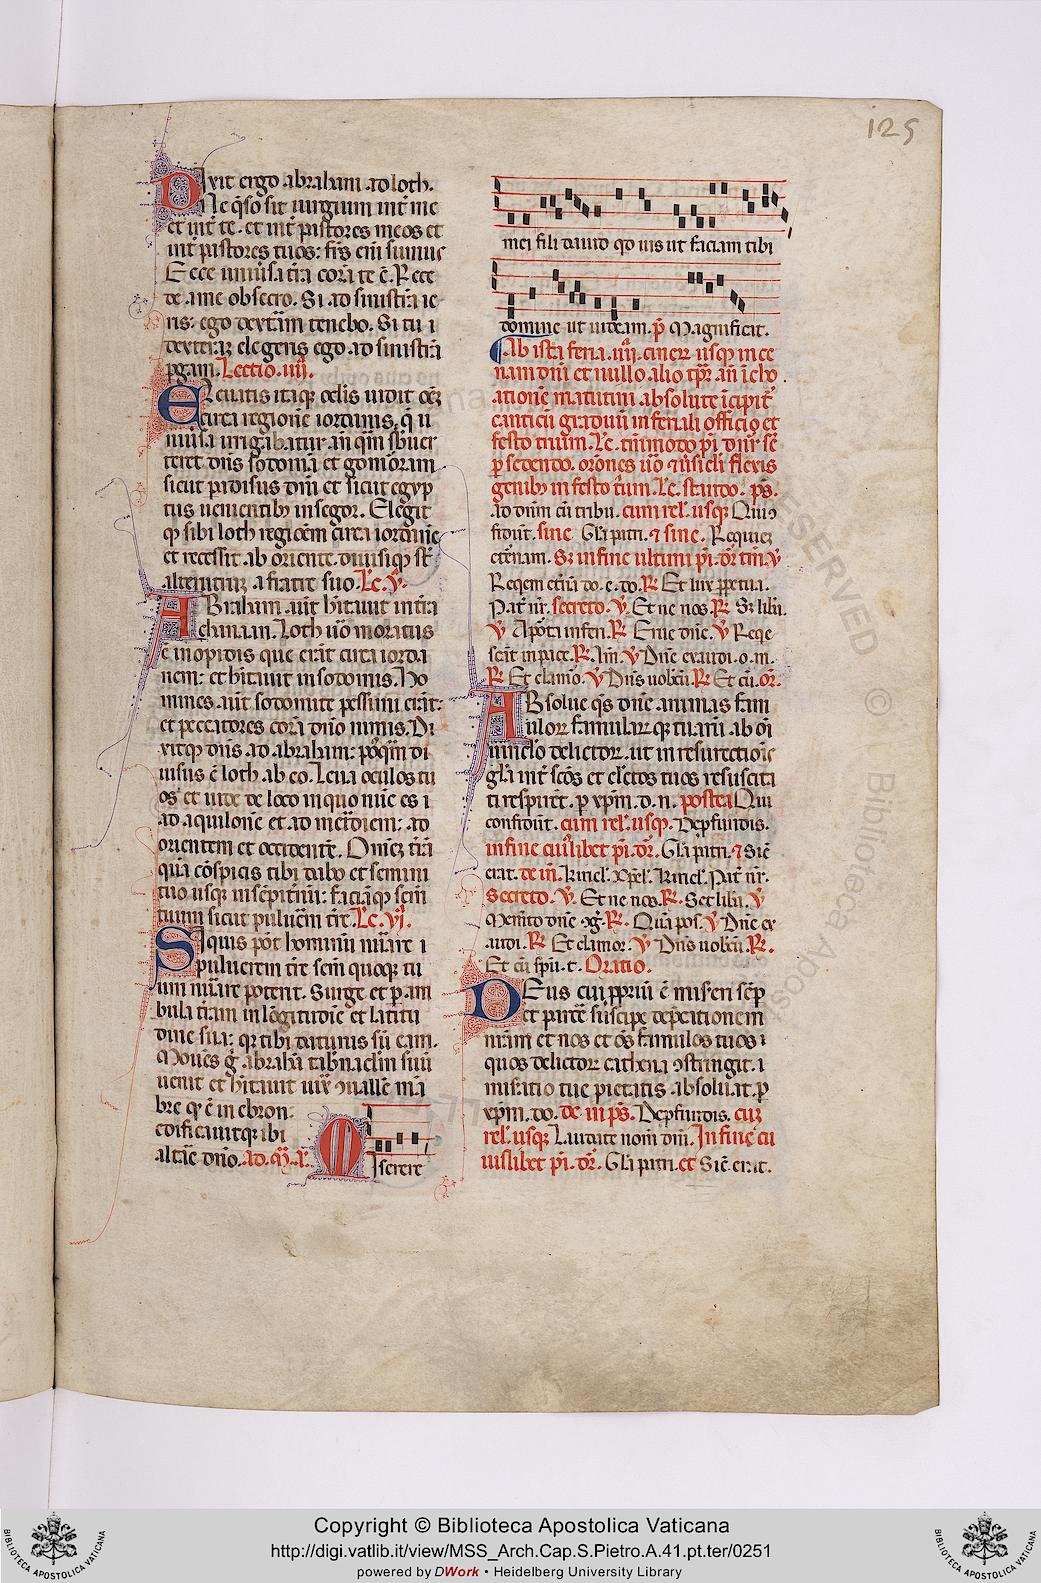 125
Dixit ergo abraham ad loth.
Ne q̄so sit iurgium int̄ me
et int̄ te. et int̄ pastores meos et
int̄ pastores tuos: fr̄s eni sumus
Ecce uniūsa t̄ra corā te ē. Rece
de a me obsecro. Si ad sinistrā ie
ris: ego dextām tenebo. Si tu
dexterā elegeris ego ad sinistrā
pgam. Lectio. iiij.
Eleuatis itaq; oclis uidit
circa regionē iordanis. q̄ u
niūsa irrigabatur an̄ q̄m sbuer
teret dn̄s sodomā et gomoram
sicut padisus dn̄i et sicut egyp
tus uenientib; in segor. Elegit
q; sibi loth regiōem circa iordanē
et recessit ab oriente. diuisiq; st̄
alterutrū a fratre suo. Lc. v.
Abraham aut̄ hītauit in t̄ra
chanaan. Loth uō moratus
ē in opidis que erāt circa iorda
nem: et hītauit in sodomis. Ho
mines aut̄ sodomite pessimi erāt:
et peccatores corā dn̄o nimis. Di
xitq; dn̄s ad abraham: posq̄m di
uisus ē loth ab eo. Leua oculos tu
os et uide de loco in quo nūc es
ad aquilone et ad meridiem: ad
orientem et occidentē. Omnē t̄rā
quā cōspicis tibi dabo et semini
tuo usq; in sēpitnū: faciāq; sem̄
tuum sicut puluēm t̄re. Lc. vj.
Siquis pot̄ hominū nuāre
puluerem t̄re sem̄ quoq; tu
um nuāre potent. Surge et pam
bula t̄ram in lōgitudīe et latitu
dine sua: q̄r tibi daturus sū eam.
Moues ḡ abrahā tabnaclm suū
uenit et hītauit iux̄ ɔuallē mā
bre q̄ ē in ebron:
edificauitq; ibi
altāe dn̄o. Ad. m̄. a.
Miserere
mei fili dauid qd uis ut faciam tibi
domine ut uideam. p̄ Magnificat.
Ab ista feria. iiij. cinerū usq; in ce
nam dn̄i et nullo alio tp̄r. an̄ icho
ationē matutini absolute icipit̄
canticū graduū in feriali officio et
festo trium. Lc.
p sedendo. or̄ones uō
genib; in festo triū. Lc. st̄ando. ps.
Ad dn̄m cū tribu. cum rel. usq; Qui ɔ
fidūt. sine Glā patri. & sine. Requiez
etēnam. Sz in fine ultimi p̄i. dr̄ tm̄. v̄
Reqem etn̄a do. e. do. R̄ Et lux ppetua.
Pat̄ nr̄. secreto. v̄. Et ne nos. R̄ Sz libā.
v̄ A pōta inferi. R̄ Erue dn̄e. v̄ Reqe
scāt in pace. R̄. Am̄. v̄ Dn̄e exaudi. o. m.
R̄ Et clamo. v̄ Dn̄s uobcū. R̄ Et cū. or̄.
Absolue q̄s dn̄e animas fam
ulorr famularr q; tuarū ab oī
uinclo delictorr. ut in resurectiois
glā int̄ scōs et el̄ctos tuos resuscita
ti respirēt. p xp̄m. d. n. postea Qui
confidūt. cum rel. usq. Depfundis.
in fine cui libet p̄i. dr̄. Glā patri. & Sic
erat. de in. Kiriel. Xpel. Kiriel. Pat̄ nr̄.
Secreto. v̄. Et ne nos. R̄. Set libā. v̄
Memēto dn̄e ɔg. R̄. Quā pos. v̄ Dn̄e ex
audi. R̄ Et clamor. v̄ Dn̄s uobcū. R̄.
Et cū sp̄u. t. Oratio.
Deus cui p̄priū ē miseri sēp
et parce suscipe depcationem
nr̄am et nos et om̄s famulos tuos
quos delictorr cathena ɔstringit.
misatio tue pietatis absoluat. p
xp̄m. do. de in ps. Depfundis. cuz
rel. usq; Laudate nom̄ dn̄i. In fine cu
iuslibet p̄i. dr̄. Glā patri. et Sic erat.
Copyright © Biblioteca Apostolica Vaticana
http://digi.vatlib.it/view/MSS_Arch.Cap.S.Pietro.A.41.pt.ter/0251
powered by DWork • Heidelberg University Library